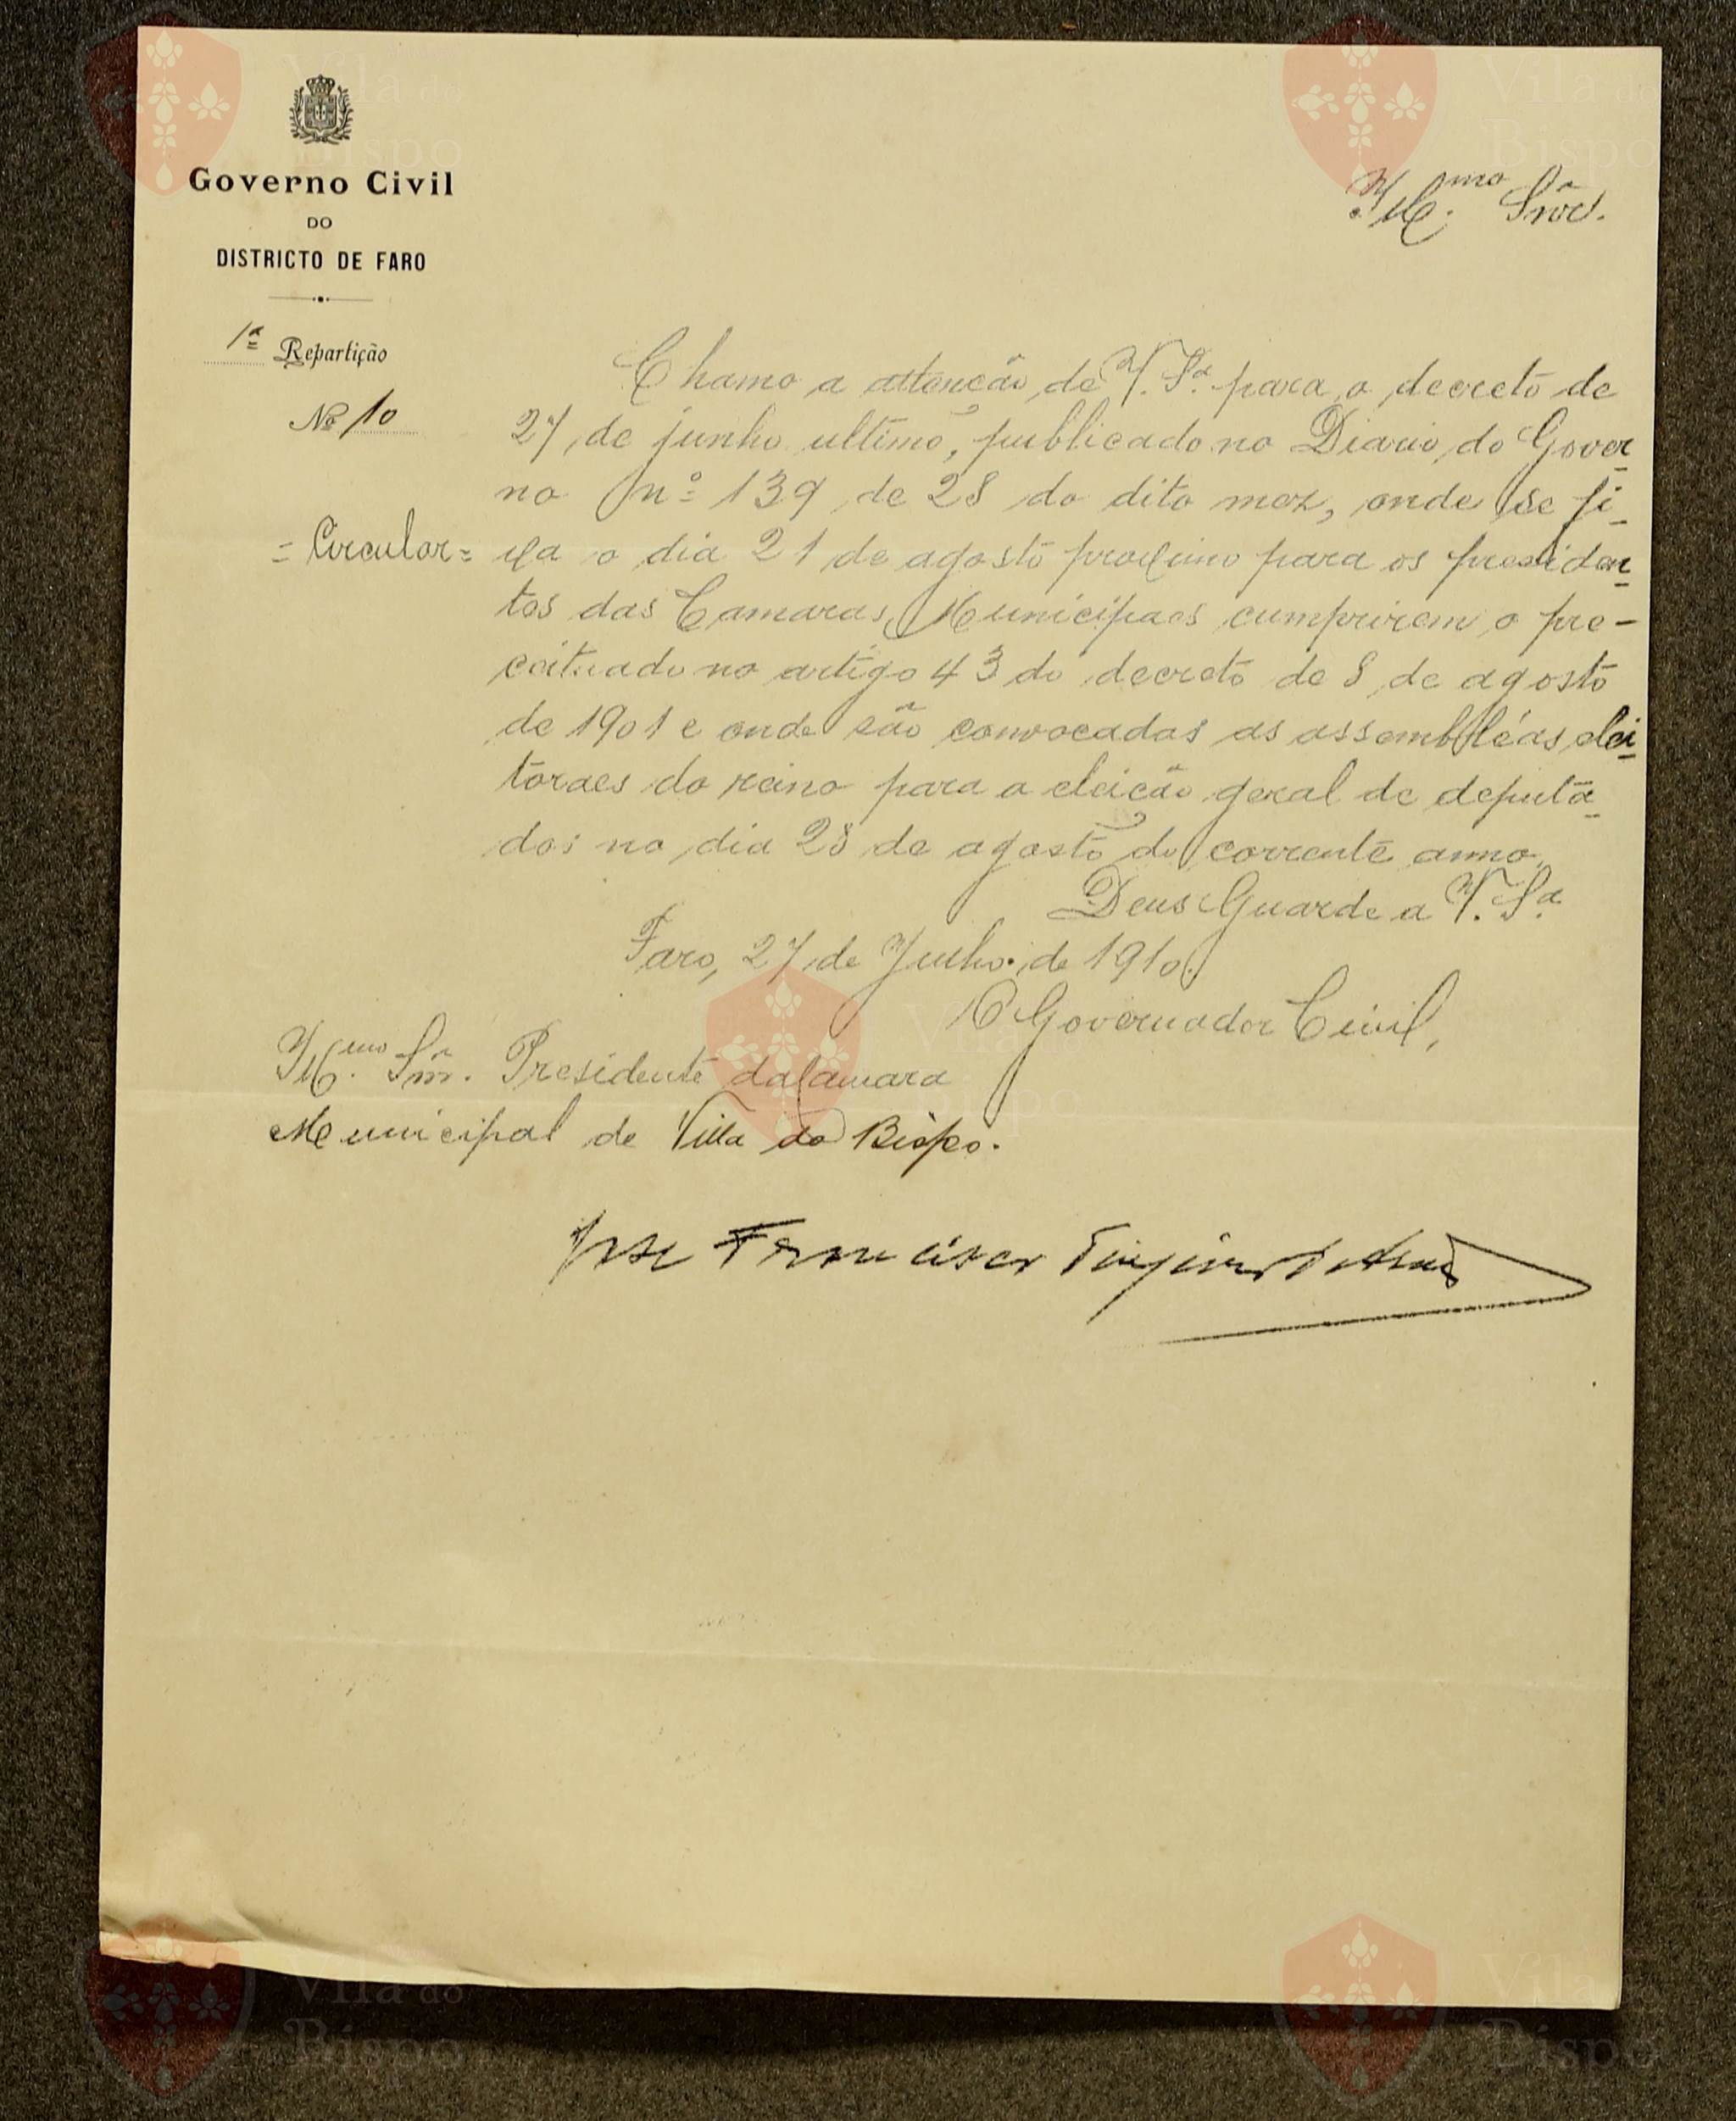 Governo Civil
DO
DISTRICTO DE FARO
1ª Repartição
Nº 10
= Circular =
Illmo. Snr.
Chamo a attenção de V. Sª para o decreto de
27 de junho ultimo, publicado no Diario do Gover-
no nº 139 de 28 do dito mez, onde se fi-
xa o dia 21 de agosto proximo para os presiden-
tes das Camaras Municipaes cumprirem o pre-
ceituado no artigo 43 do decreto de 8 de agosto
de 1901 e onde são convocadas as assembléas elei-
toraes do reino para a eleição geral de deputa-
dos no dia 28 de agosto do corrente anno.
Deus Guarde a V. Sª
Faro, 27 de Julho de 1910.
O Governador Civil,
Illmo. Snr. Presidente da Camara
Municipal de Villa do Bispo.
José Francisco
Vila do
Bispo
Vila do
Bispo
Vila do
Bispo
Vila do
Bispo
Vila do
Bispo